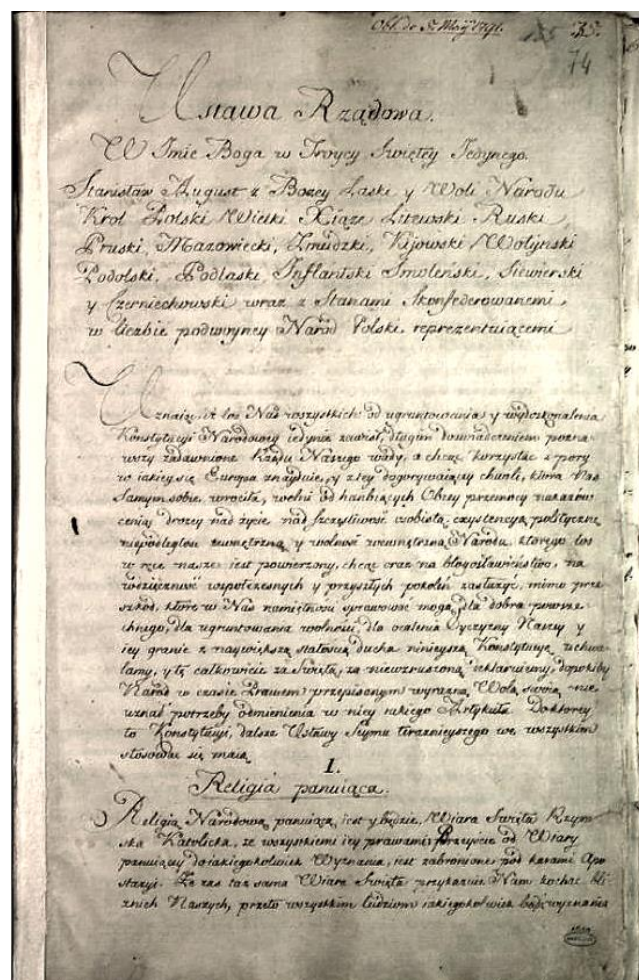 Obl. de 5ta Maij 1791.
155 35.
74
Ustawa Rządowa.
W Imie Boga w Troycy Swiętey Jedynego.
Stanisław August z Bozey Łaski y Woli Narodu
Krol Polski Wielki Xiąze Litewski Ruski
Pruski, Mazowiecki, Zmudzki, Kijowski Wołynski
Podolski, Podlaski, Inflantski Smolenski, Siewierski
y Czerniechowski wraz z Stanami Skonfederowanemi
w liczbie podwoyney Narod Polski reprezentuiącemi
Uznaiąc, iż los Nas wszystkich od ugruntowania y wydoskonalenia
Konstytucyi Narodowey iedynie zawisł, długim doswiadczeniem pozna-
wszy zadawnione Rządu Naszego wady, a chcąc korzystac z pory
w iakiey się Europa znayduie, y z tey dogorywaiącey chwili, ktora Nas
samym sobie wrociła, wolni od hanbiących Obcey przemocy nakazow
ceniąc drozey nad zycie nad szczęsliwosc osobistą exystencyą polityczną
niepodległosc zewnętrzną y wolnosc wewnętrzną Narodu, ktorego los
w ręce nasze iest powierzony, chcąc oraz na błogosławienstwo, na
wdzięcznosc wspołczesnych y przyszłych pokolen zasłuzyc, mimo prze-
szkod, ktore w Nas namiętnosci sprawowac mogą, dla dobra powsze-
chnego, dla ugruntowania wolnosci, dla ocalenia Oyczyzny Naszey y
iey granic z naywiększą stałoscią ducha ninieyszą Konstytucyę uchwa-
lamy, y tę całkowicie za swiętą, za niewzruszoną deklaruiemy, dopokiby
Narod w czasie Prawem przepisanym wyrazną Wolą swoią nie
uznał potrzeby odmienienia w niey iakiego Artykułu Do ktorey
to Konstytucyi, dalsze Ustawy Seymu teraznieyszego we wszystkim
stosowac się maią
I.
Religia panuiąca.
Religią Narodową panuiącą iest y będzie, Wiara Swięta Rzym-
ska Katolicka, ze wszystkiemi iey prawami, Przeyscie od Wiary
panuiącey do iakiegokolwiek Wyznania, iest zabronione pod karami Apo-
stazyi. Ze zas taz sama Wiara Swięta przykazuie Nam kochac bli-
znich Naszych, przeto wszystkim ludziom iakiegokolwiek bądz wyznania